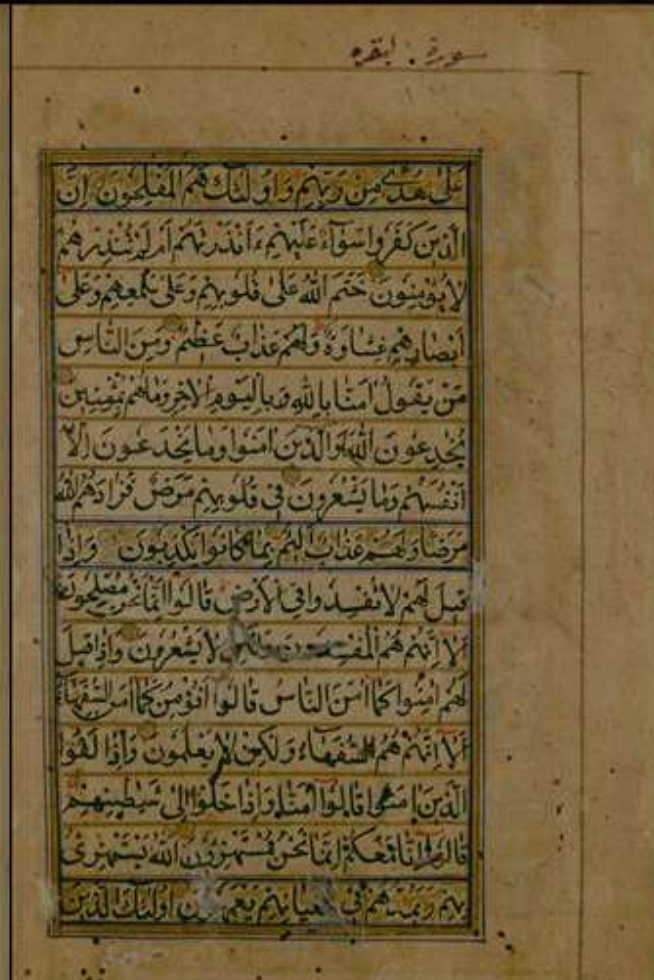 سورة: البقره
عَلَىٰ هُدًى مِنْ رَبِّهِمْ وَأُولَٰئِكَ هُمُ الْمُفْلِحُونَ اِنَّ
الَّذِينَ كَفَرُوا سَوَآءٌ عَلَيْهِمْ ءَاَنْذَرْتَهُمْ اَمْ لَمْ تُنْذِرْهُمْ
لَا يُؤْمِنُونَ خَتَمَ اللهُ عَلٰى قُلُوبِهِمْ وَعَلٰى سَمْعِهِمْ وَعَلٰى
اَبْصَارِهِمْ غِشَاوَةٌ وَلَهُمْ عَذَابٌ عَظِيمٌ وَمِنَ النَّاسِ
مَنْ يَقُولُ اٰمَنَّا بِاللهِ وَبِالْيَوْمِ الْاٰخِرِ وَمَا هُمْ بِمُؤْمِنِينَ
يُخٰدِعُونَ اللهَ وَالَّذِينَ اٰمَنُوا وَمَا يَخْدَعُونَ اِلَّا
اَنْفُسَهُمْ وَمَا يَشْعُرُونَ فِى قُلُوبِهِمْ مَرَضٌ فَزَادَهُمُ اللهُ
مَرَضًا وَلَهُمْ عَذَابٌ اَلِيمٌ بِمَا كَانُوا يَكْذِبُونَ وَاِذَا
قِيلَ لَهُمْ لَا تُفْسِدُوا فِى الْاَرْضِ قَالُوا اِنَّمَا نَحْنُ مُصْلِحُونَ
اَلَا اِنَّهُمْ هُمُ الْمُفْسِدُونَ وَلٰكِنْ لَا يَشْعُرُونَ وَاِذَا قِيلَ
لَهُمْ اٰمِنُوا كَمَا اٰمَنَ النَّاسُ قَالُوا اَنُؤْمِنُ كَمَا اٰمَنَ السُّفَهَآءُ
اَلَا اِنَّهُمْ هُمُ السُّفَهَآءُ وَلٰكِنْ لَا يَعْلَمُونَ وَاِذَا لَقُوا
الَّذِينَ اٰمَنُوا قَالُوا اٰمَنَّا وَاِذَا خَلَوْا اِلٰى شَيٰطِينِهِمْ
قَالُوا اِنَّا مَعَكُمْ اِنَّمَا نَحْنُ مُسْتَهْزِؤُنَ اَللهُ يَسْتَهْزِئُ
بِهِمْ وَيَمُدُّهُمْ فِى طُغْيَانِهِمْ يَعْمَهُونَ اُولٰئِكَ الَّذِينَ